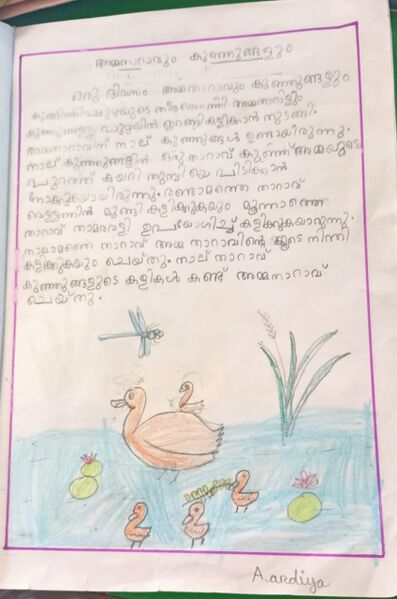 അമ്മതാറാവും കുഞ്ഞുങ്ങളും
ഒരു ദിവസം അമ്മതാറാവും കുഞ്ഞുങ്ങളും
തീരത്തെത്തി അമ്മതാറാവും
കുഞ്ഞുങ്ങളും പുഴയിൽ ഇറങ്ങികളിക്കാൻ തുടങ്ങി.
അമ്മതാറാവിന് നാല് കുഞ്ഞുങ്ങൾ ഉണ്ടായിരുന്നു.
നാല് കുഞ്ഞുങ്ങളിൽ ഒരു താറാവ് കുഞ്ഞ് അമ്മയുടെ
പുറത്ത് കയറി തുമ്പിയെ പിടിക്കാൻ
നോക്കുകയായിരുന്നു. രണ്ടാമത്തെ താറാവ്
വെള്ളത്തിൽ മുങ്ങി കളിക്കുകയും മൂന്നാത്തെ
താറാവ് താമരവള്ളി ഉപയോഗിച്ച് കളിക്കുകയാരുന്നു.
നാലാമത്തെ താറാവ് അമ്മ താറാവിന്റെ കൂടെ നിന്തി
കളിക്കുകയും ചെയ്തു. നാല് താറാവ്
കുഞ്ഞുങ്ങളുടെ കളികൾ കണ്ട് അമ്മതാറാവ്
ചെയ്തു.
Aardiya